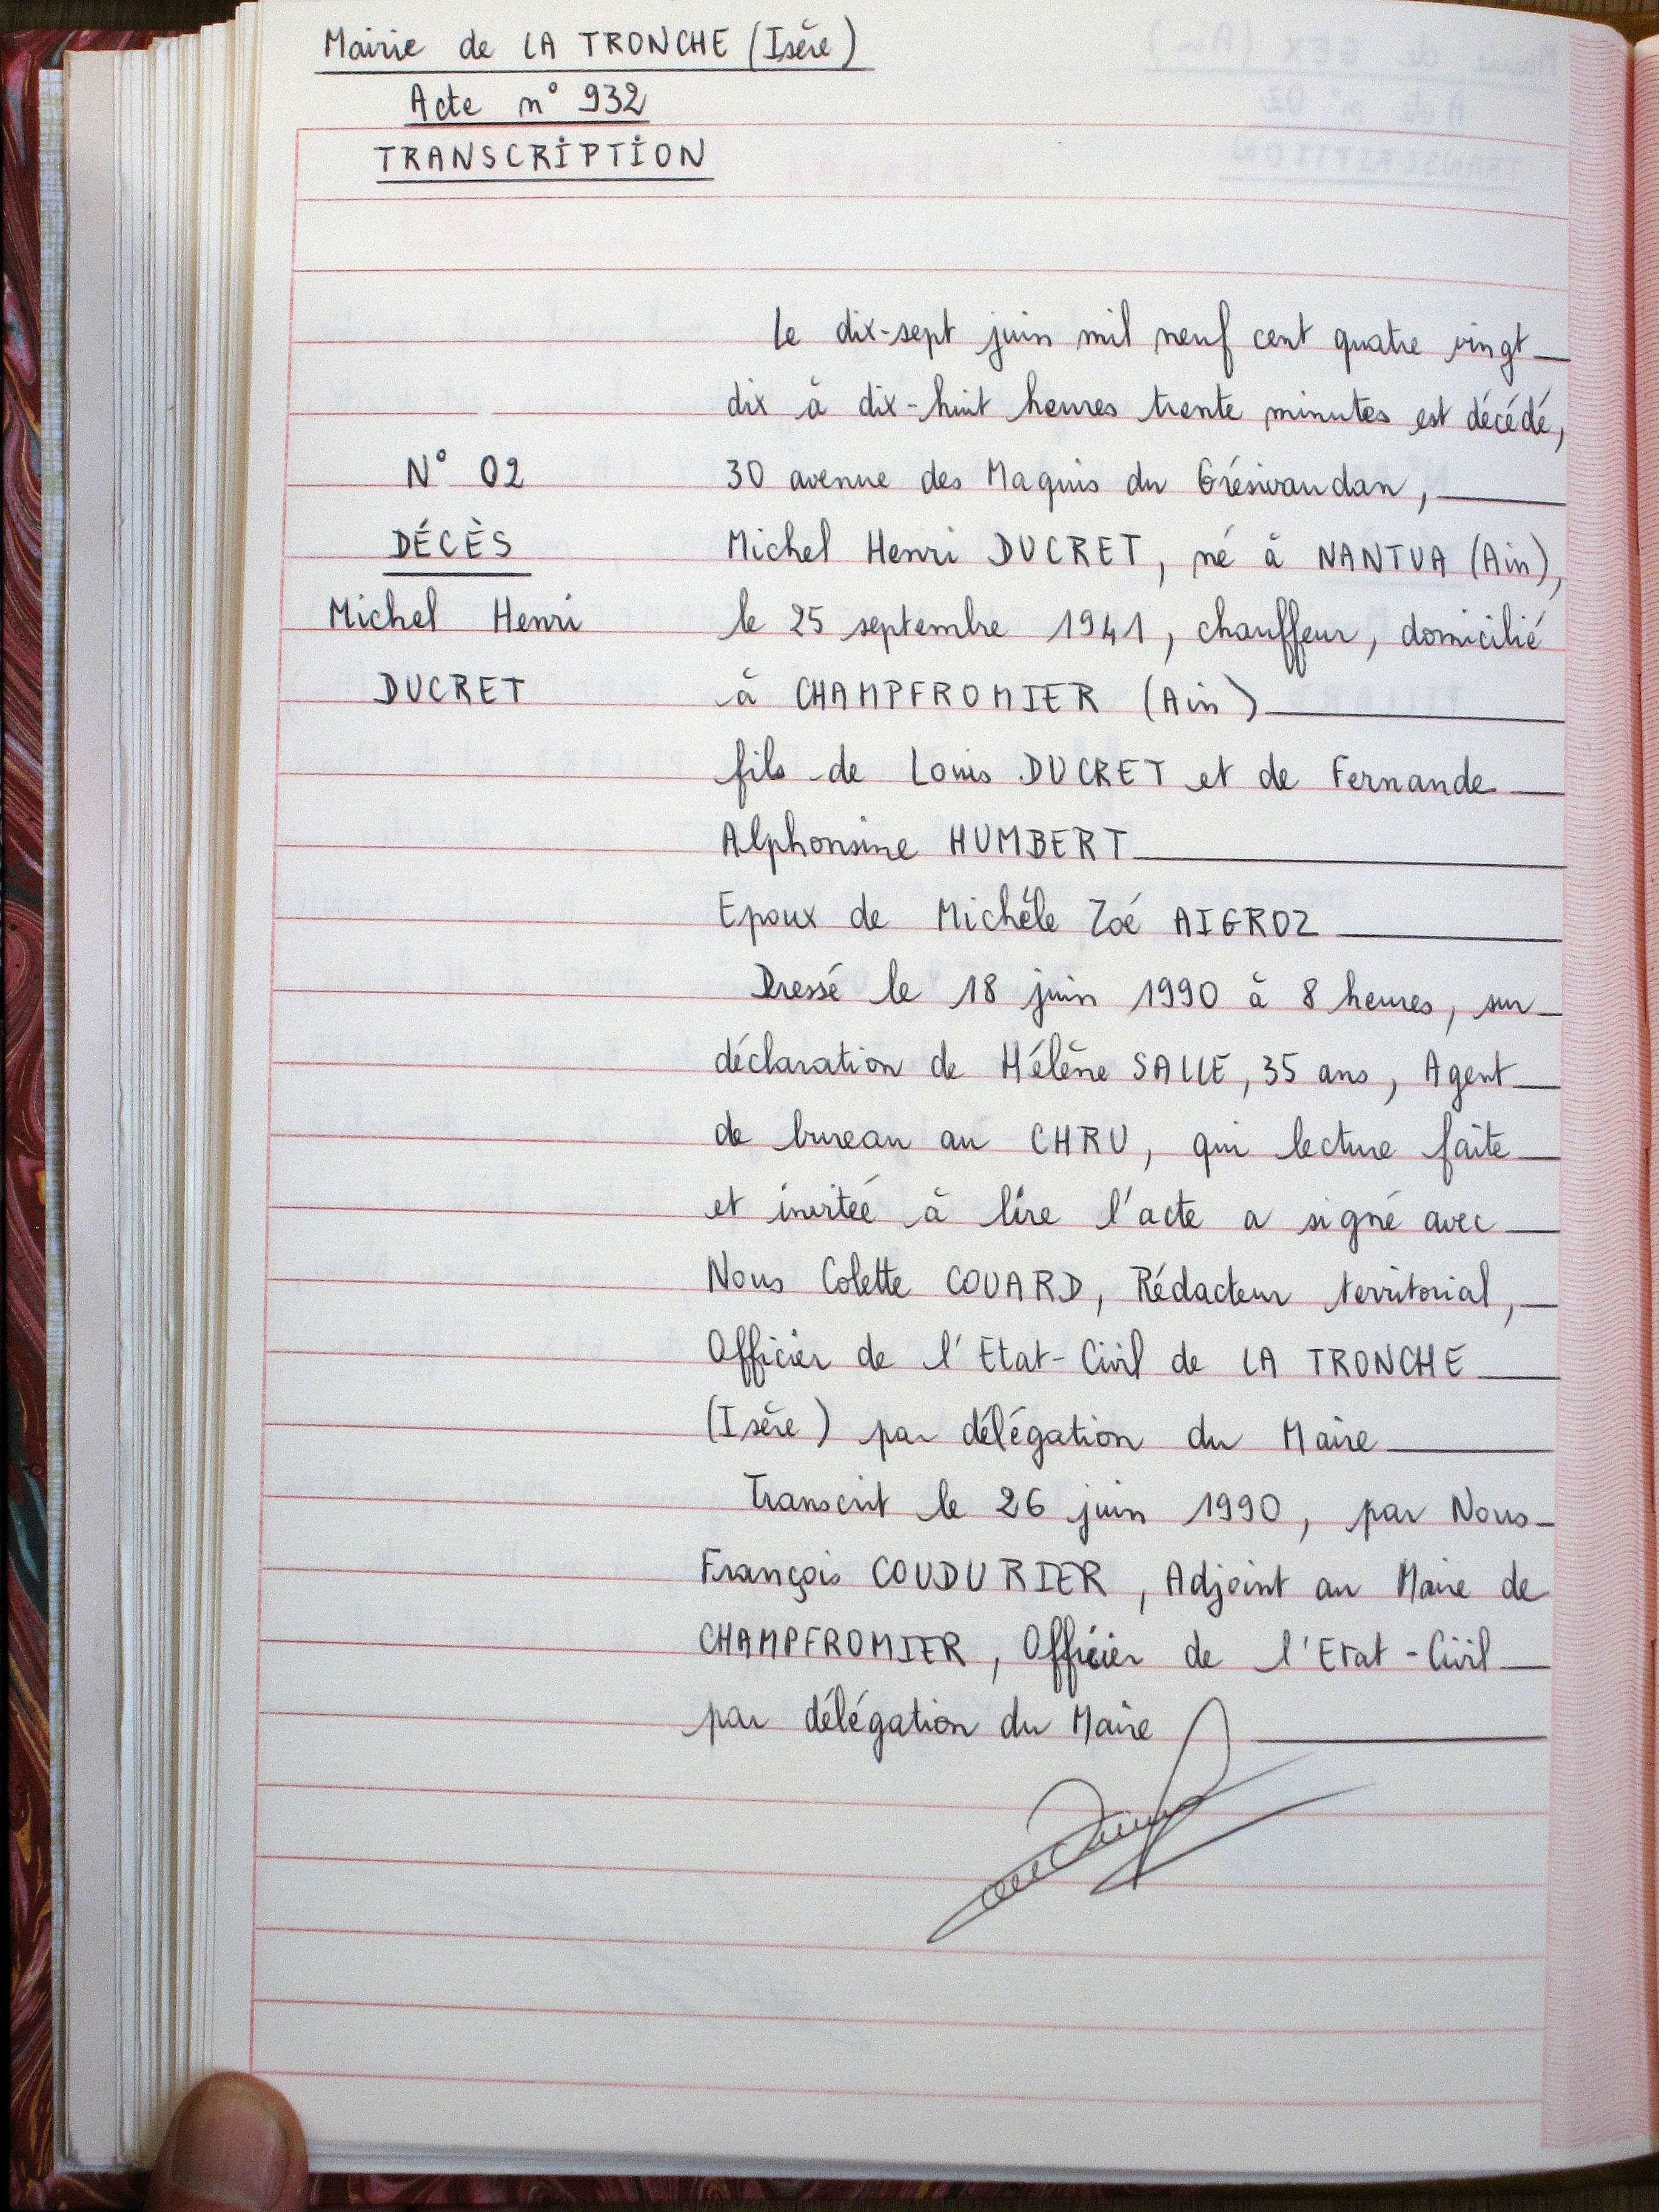 Mairie de LA TRONCHE (Isère)
Acte n° 932
TRANSCRIPTION
Le dix-sept juin mil neuf cent quatre vingt
dix à dix-huit heures trente minutes est décédé,
N° 02
30 avenue des Maquis du Grésivaudan,
DÉCÈS
Michel Henri DUCRET, né à NANTUA (Ain),
Michel Henri
le 25 septembre 1941, chauffeur, domicilié
DUCRET
à CHAMPFROMIER (Ain)
fils de Louis DUCRET et de Fernande
Alphonsine HUMBERT
Epoux de Michèle Zoé AIGROZ
Dressé le 18 juin 1990 à 8 heures, sur
déclaration de Hélène SALLE, 35 ans, Agent
de bureau au CHRU, qui lecture faite
et invitée à lire l'acte a signé avec
Nous Colette COUARD, Rédacteur territorial,
Officier de l'Etat-Civil de LA TRONCHE
(Isère) par délégation du Maire
Transcrit le 26 juin 1990, par Nous
François COUDURIER, Adjoint au Maire de
CHAMPFROMIER, Officier de l'Etat-Civil
par délégation du Maire